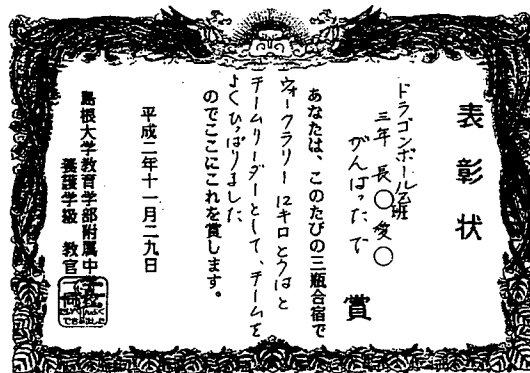 表彰状
ドラゴンボールZ班
三年 長〇愛〇
がんばったで賞
あなたは、このたびの三瓶合宿で
ウォークラリー12キロとうはと
チームリーダーとして、チームを
よくひっぱりました
のでここにこれを賞します。
平成二年十一月二九日
島根大学教育学部附属中学校
養護学級 教官一同